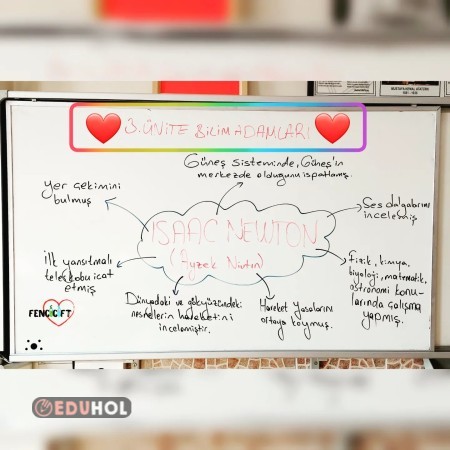 3. ÜNİTE BİLİM ADAMLARI
Güneş Sisteminde, Güneş'in
merkezde olduğunu ispatlamış.
Yer çekimini
bulmuş
Ses dalgalarını
incelemiş
ISAAC NEWTON
(Ayzek Nivtın)
İlk yansıtmalı
teleskobu icat
etmiş
Fizik, kimya,
biyoloji, matematik,
astronomi konu-
larında çalışma
yapmış.
Dünyadaki ve gökyüzündeki
nesnelerin hareketini
incelemiştir.
Hareket Yasalarını
ortaya koymuş.
FENCİ ÇİFT
EDUHOL